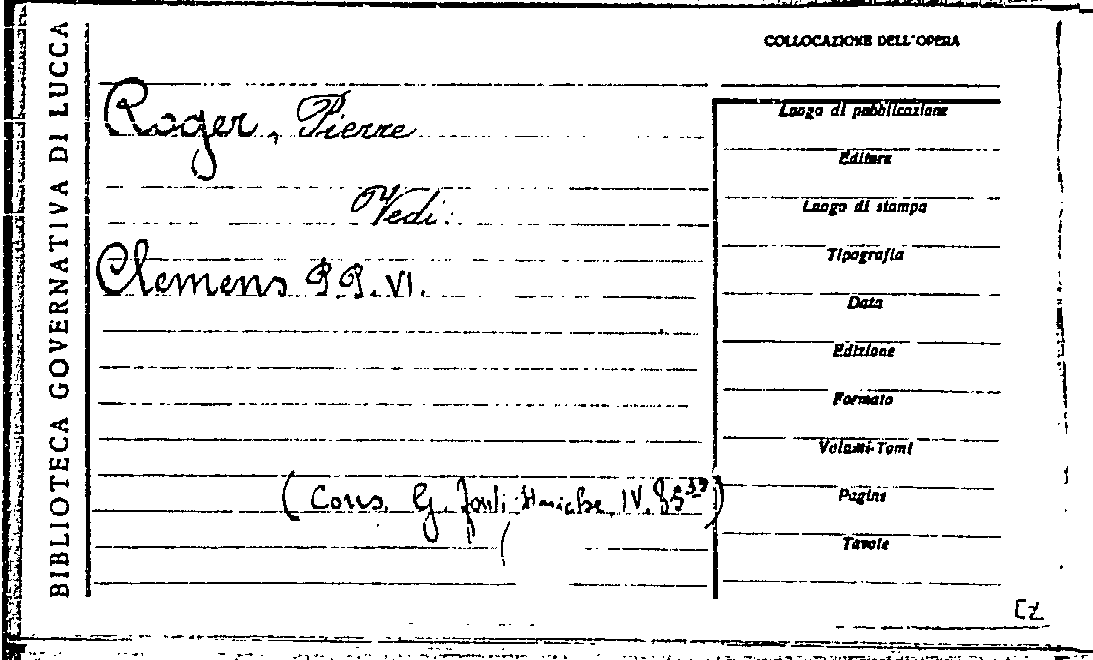 BIBLIOTECA GOVERNATIVA DI LUCCA
COLLOCAZIONE DELL'OPERA
Roger, Pierre
Vedi:
Clemens P.P. VI.
(Cons. G. fonti storiche IV.
Luogo di pubblicazione
Editore
Luogo di stampa
Tipografia
Data
Edizione
Formato
Volumi-Tomi
Pagine
Tavole